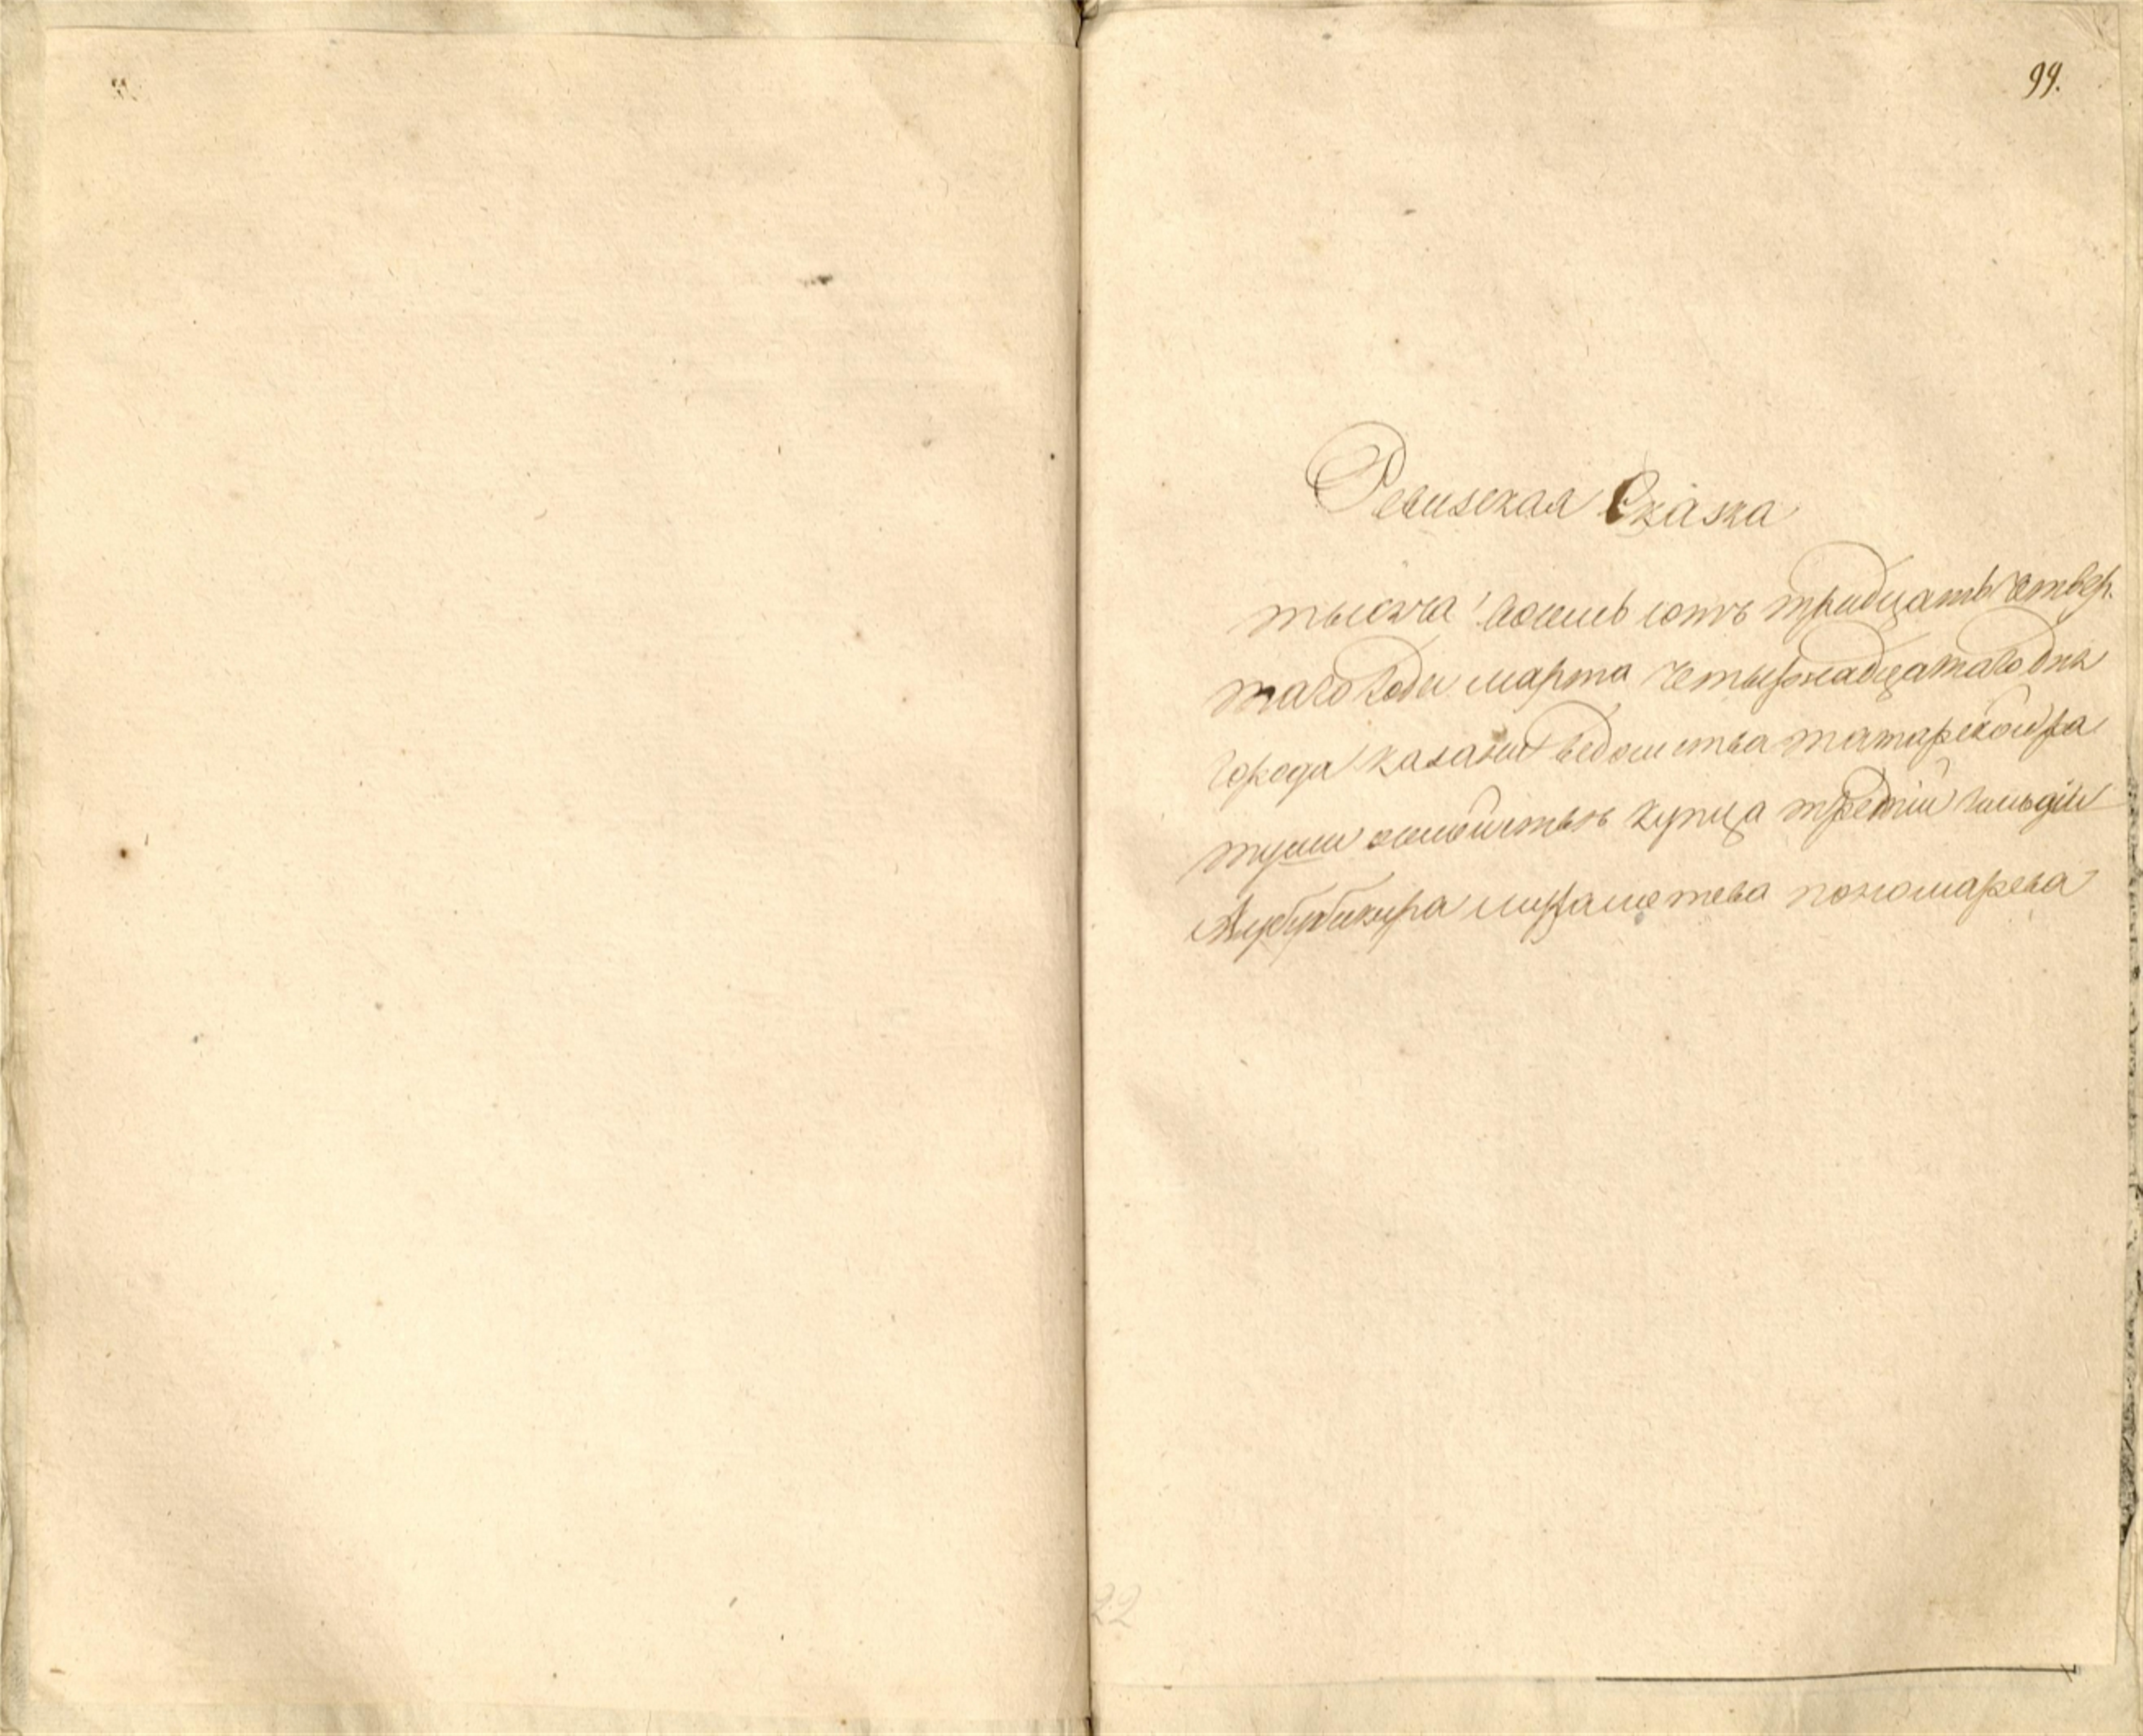 99.
Ревизская Сказка
тысяча восемь сотъ тридцать четвер.
таго года марта четырнадцатаго дня
города казани ведомства татарской ра
туши купца третій гильдіи
пономарева
22